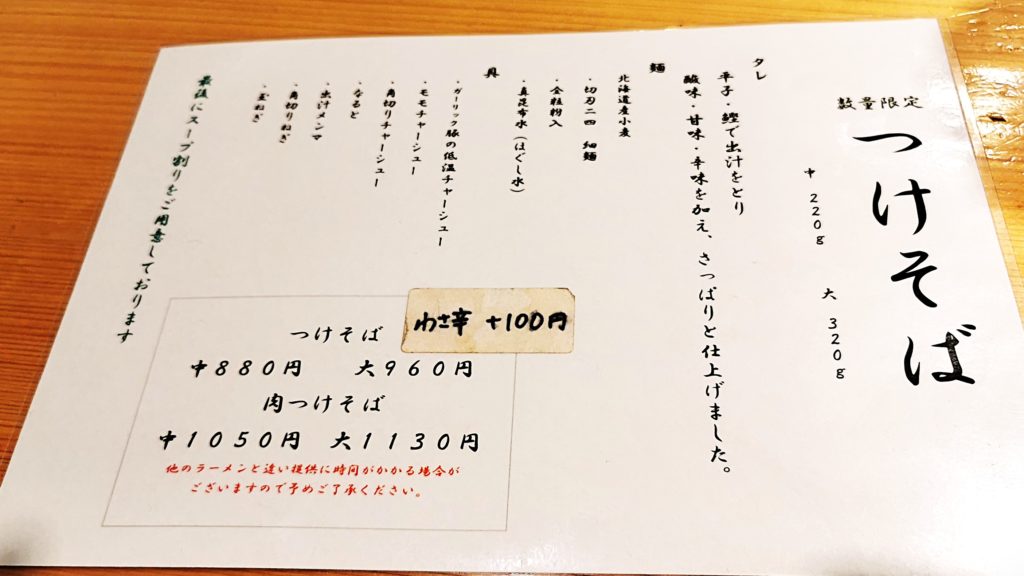 数量限定
つけそば
中 220g 大 320g
タレ
平子・鰹で出汁をとり
酸味・甘味・辛味を加え、さっぱりと仕上げました。
麺
北海道産小麦
・切刃二四 細麺
・全粒粉入
・真昆布水(ほぐし水)
具
・ガーリック豚の低温チャーシュー
・モモチャーシュー
・角切りチャーシュー
・なると
・出汁メンマ
・角切りねぎ
・玉ねぎ
最後にスープ割りをご用意しております
わさ辛 +100円
つけそば
中880円 大960円
肉つけそば
中1050円 大1130円
他のラーメンと違い提供に時間がかかる場合が
ございますので予めご了承ください。